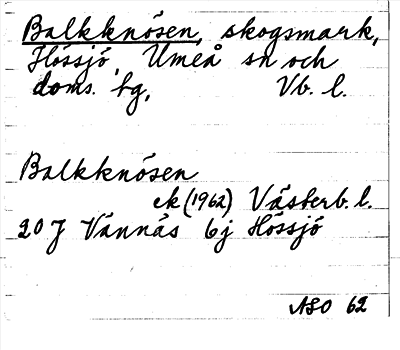 Balkknösen, skogsmark,
Hössjö, Umeå sn och
doms. hg, Vb. l.
Balkknösen
ek (1962) Västerb. l.
20 J Vännäs 6j Hössjö
ASO 62